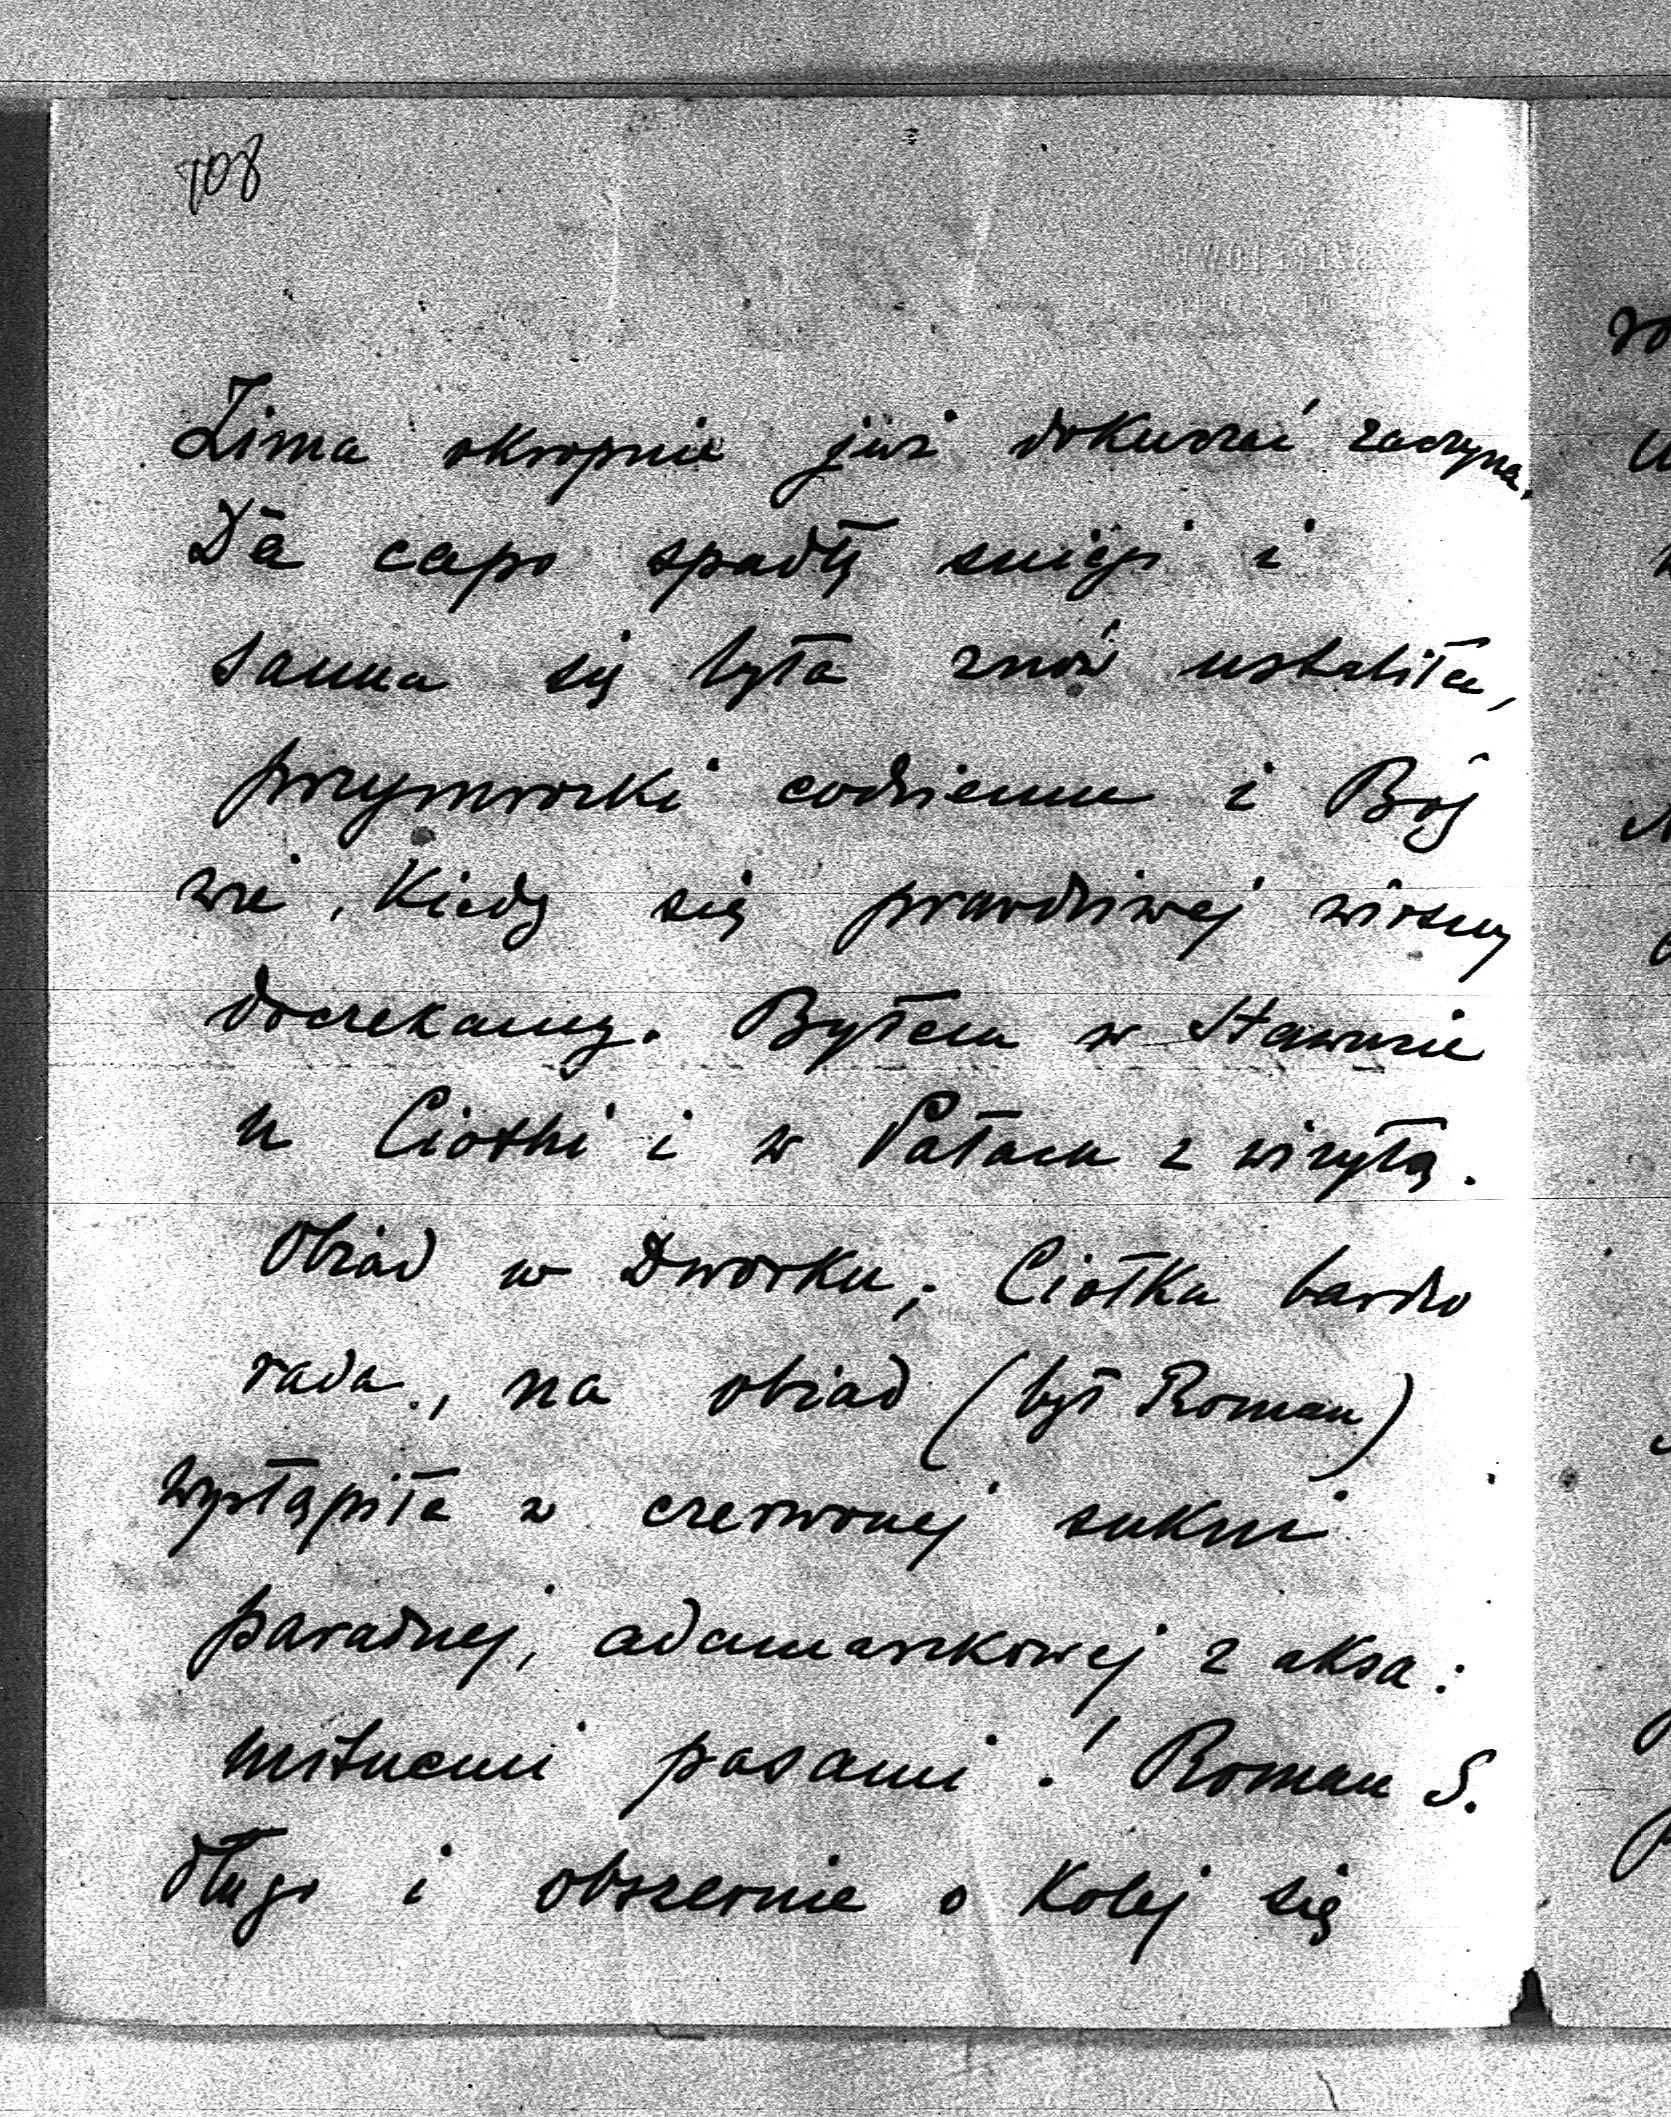 708
Zima okropnie już dokuczać zaczyna.
Da capo spadły śniegi i
sanna się była znów ustaliła,
przymrozki codzienne i Bóg
wie, kiedy się prawdziwej wiosny
doczekamy. Byłem w Sławucie
u Ciotki i w Pałacu z wizytą.
Obiad w Dworku, Ciotka bardzo
rada, na obiad (był Roman)
wystąpiła w czerwonej sukni
paradnej, adamaszkowej z aksa:
mitnemi pasami! Roman S.
długo i obszernie o kolej się